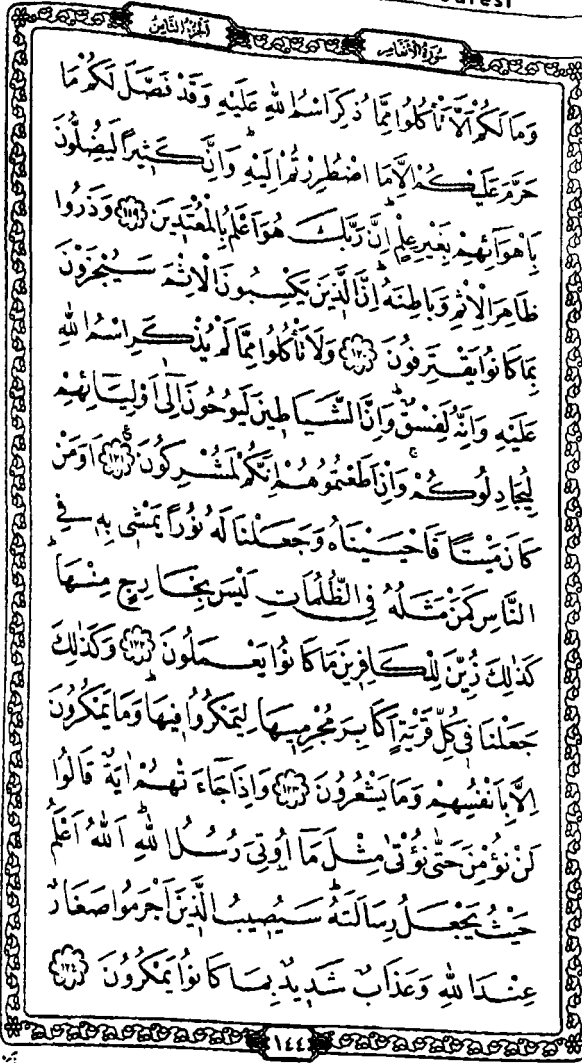 اَلْجُزْءُ الثَّامِنُ
سُورَةُ الْاَنْعَامِ
وَمَا لَكُمْ اَلَّا تَأْكُلُوا مِمَّا ذُكِرَ اسْمُ اللّٰهِ عَلَيْهِ وَقَدْ فَصَّلَ لَكُمْ مَا
حَرَّمَ عَلَيْكُمْ اِلَّا مَا اضْطُرِرْتُمْ اِلَيْهِۜ وَاِنَّ كَث۪يرًا لَيُضِلُّونَ
بِاَهْوَٓائِهِمْ بِغَيْرِ عِلْمٍۜ اِنَّ رَبَّكَ هُوَ اَعْلَمُ بِالْمُعْتَد۪ينَ ﴿١١٩﴾ وَذَرُوا
ظَاهِرَ الْاِثْمِ وَبَاطِنَهُۜ اِنَّ الَّذ۪ينَ يَكْسِبُونَ الْاِثْمَ سَيُجْزَوْنَ
بِمَا كَانُوا يَقْتَرِفُونَ ﴿١٢٠﴾ وَلَا تَأْكُلُوا مِمَّا لَمْ يُذْكَرِ اسْمُ اللّٰهِ
عَلَيْهِ وَاِنَّهُ لَفِسْقٌۜ وَاِنَّ الشَّيَاط۪ينَ لَيُوحُونَ اِلٰٓى اَوْلِيَٓائِهِمْ
لِيُجَادِلُوكُمْۚ وَاِنْ اَطَعْتُمُوهُمْ اِنَّكُمْ لَمُشْرِكُونَ ﴿١٢١﴾ اَوَمَنْ
كَانَ مَيْتًا فَاَحْيَيْنَاهُ وَجَعَلْنَا لَهُ نُورًا يَمْش۪ي بِه۪ فِي
النَّاسِ كَمَنْ مَثَلُهُ فِي الظُّلُمَاتِ لَيْسَ بِخَارِجٍ مِنْهَاۜ
كَذٰلِكَ زُيِّنَ لِلْكَافِر۪ينَ مَا كَانُوا يَعْمَلُونَ ﴿١٢٢﴾ وَكَذٰلِكَ
جَعَلْنَا ف۪ي كُلِّ قَرْيَةٍ اَكَابِرَ مُجْرِم۪يهَا لِيَمْكُرُوا ف۪يهَاۜ وَمَا يَمْكُرُونَ
اِلَّا بِاَنْفُسِهِمْ وَمَا يَشْعُرُونَ ﴿١٢٣﴾ وَاِذَا جَٓاءَتْهُمْ اٰيَةٌ قَالُوا
لَنْ نُؤْمِنَ حَتّٰى نُؤْتٰى مِثْلَ مَٓا اُو۫تِيَ رُسُلُ اللّٰهِۜ اَللّٰهُ اَعْلَمُ
حَيْثُ يَجْعَلُ رِسَالَتَهُۜ سَيُص۪يبُ الَّذ۪ينَ اَجْرَمُوا صَغَارٌ
عِنْدَ اللّٰهِ وَعَذَابٌ شَد۪يدٌ بِمَا كَانُوا يَمْكُرُونَ ﴿١٢٤﴾
١٤٤